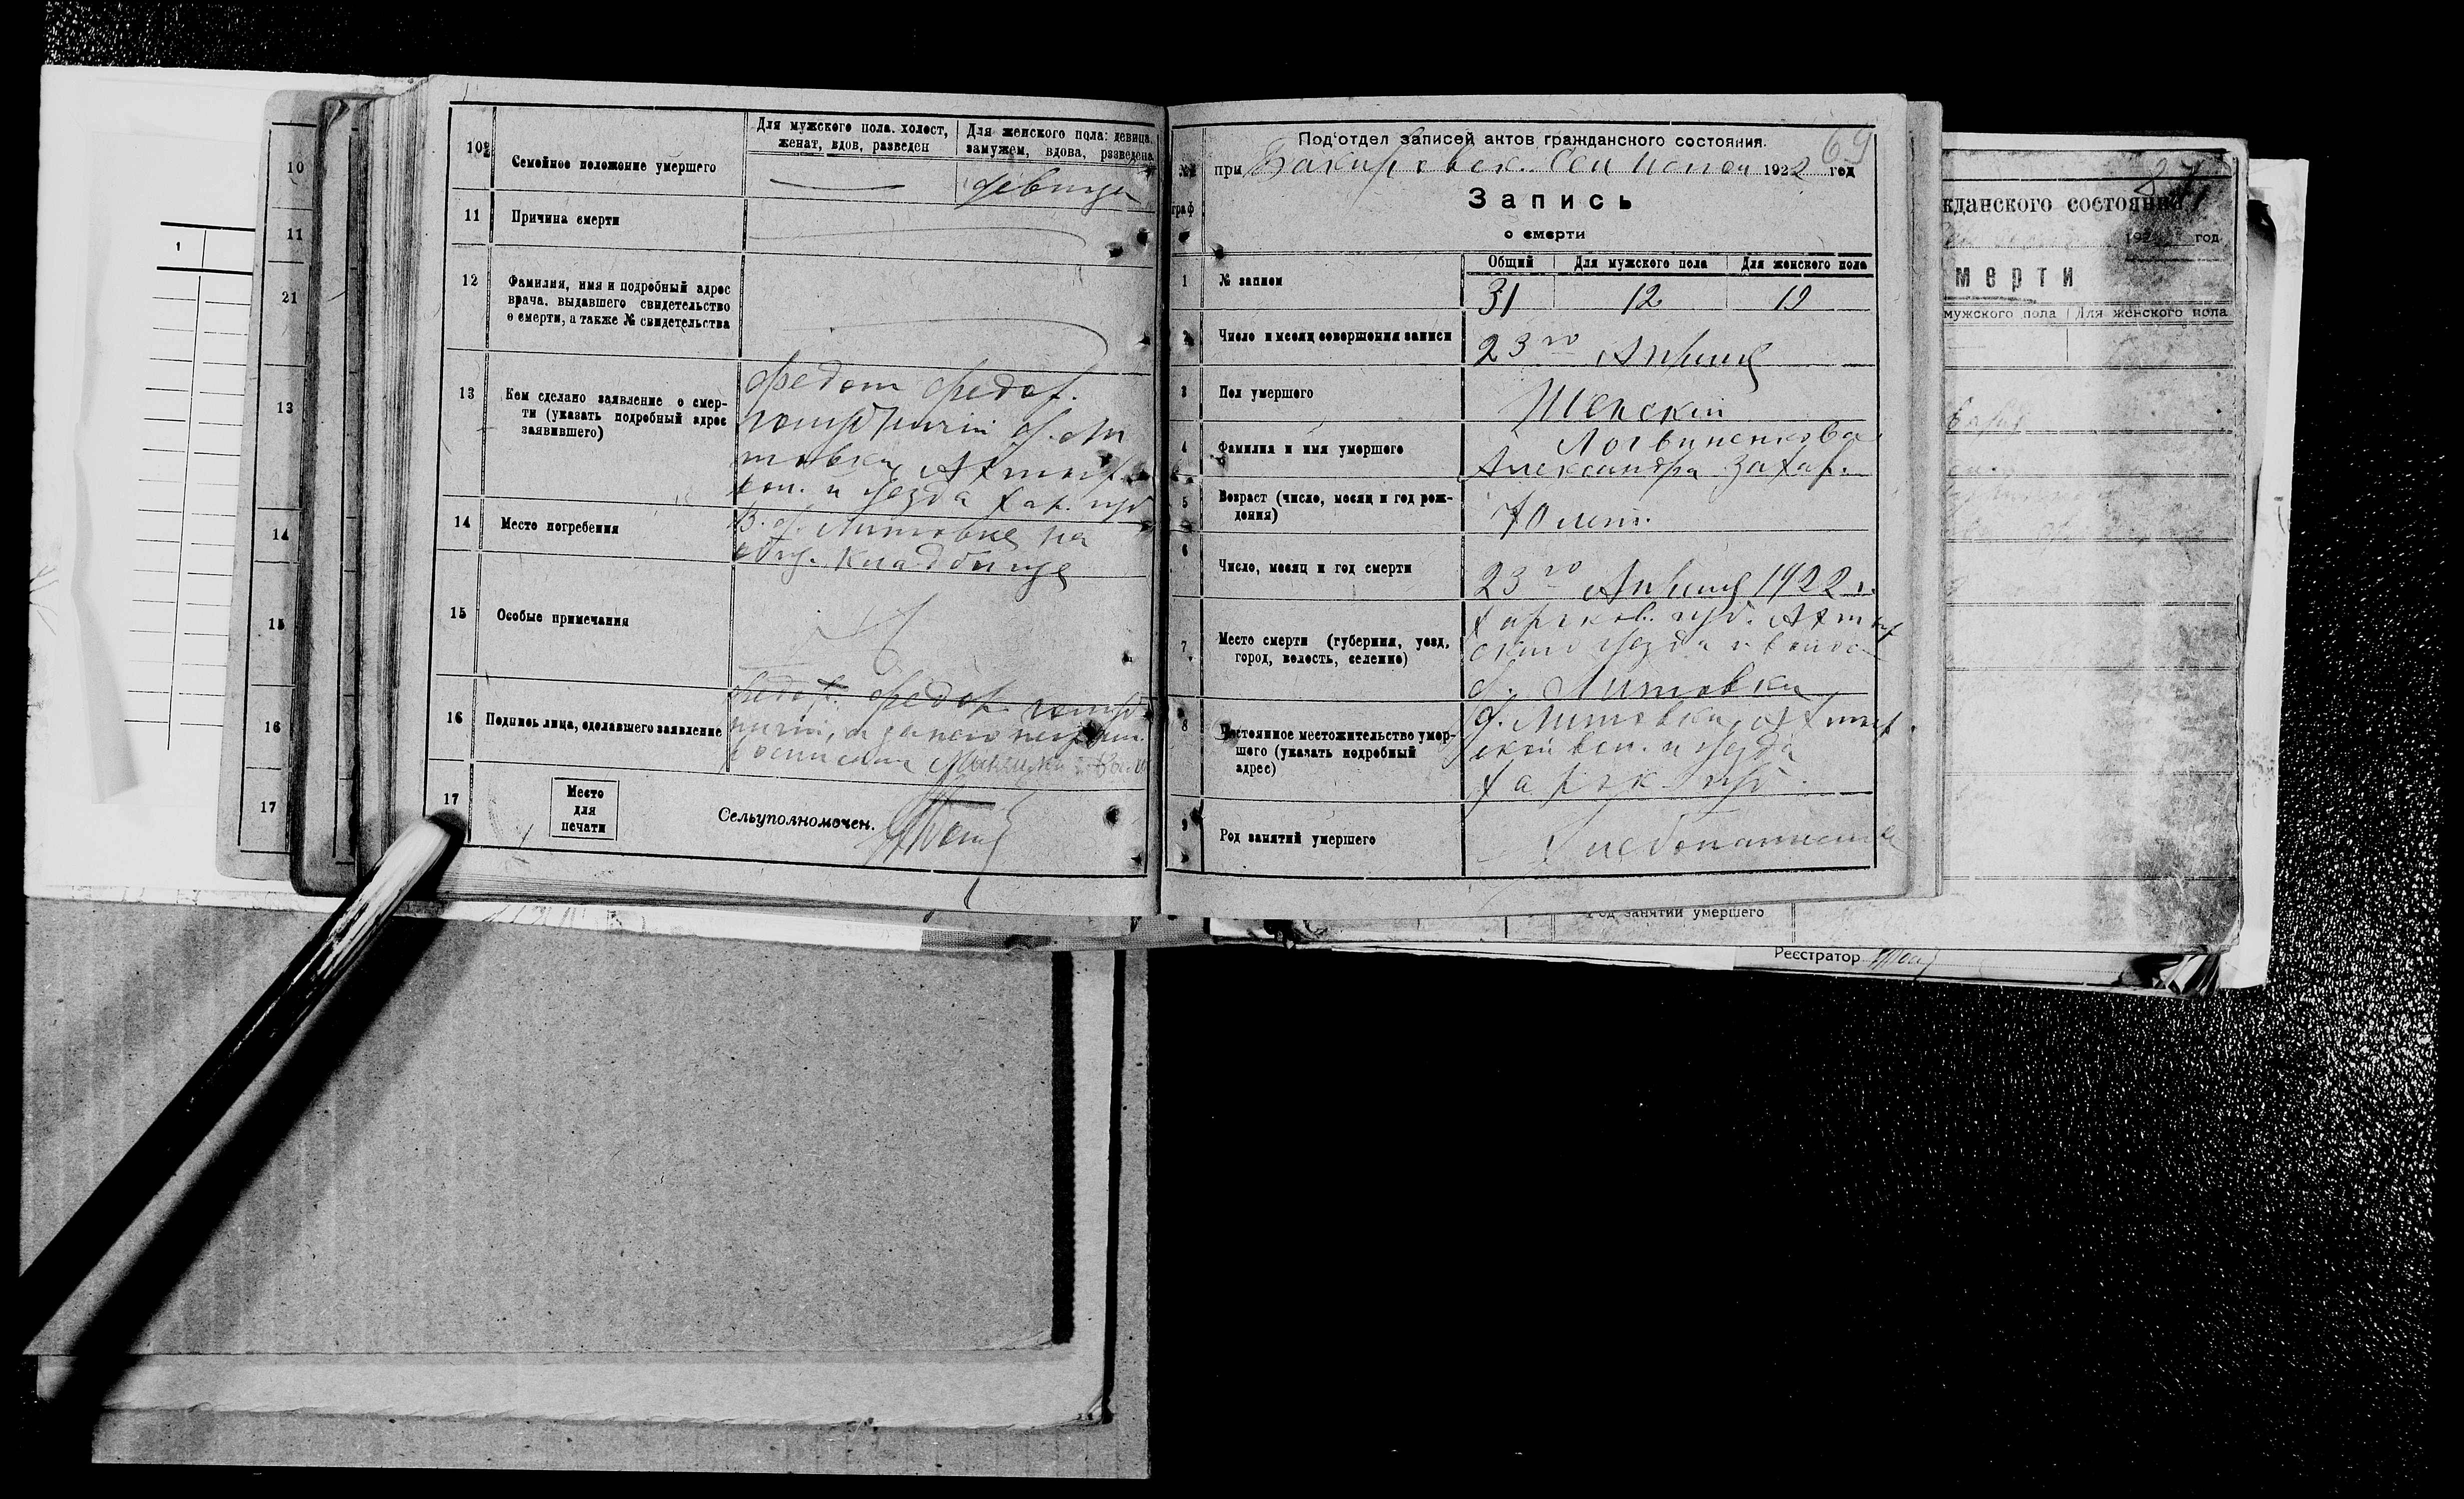 10
11
21
13
14
15
16
17
1
10
Семейное положение умершего
Для мужского пола. холост,
женат, вдов, разведен
Для женского пола: девица,
замужем, вдова, разведена
девица
11
Причина смерти
12
Фамилия, имя и подробный адрес
врача, выдавшего свидетельство
о смерти, а также № свидетельства
13
Кем сделано заявление о смер-
ти (указать подробный адрес
заявившего)
Федот Федор.
х. Ли
товки, Ахтыр.
вол. и уезда Хар. губ
14
Место погребения
В х. Литовке на
общ. кладбище
15
Особые примечания
16
Подпись лица, сделавшего заявление
Федор.
а за него неграм.
росписался
17
Место
для
печати
Сельуполномочен.
69
Под'отдел записей актов гражданского состояния.
при Бакировск. Сел 1922 год
Запись
о смерти
№
граф
1
№ записи
Общий
Для мужского пола
Для женского пола
31
12
19
2
Число и месяц совершения записи
23го Апреля
3
Пол умершого
Женский
4
Фамилия и имя умершого
Логвиненкова
Александра Захар.
5
Возраст (число, месяц и год рож-
дения)
70 лет.
6
Число, месяц и год смерти
23го Апреля 1922 г.
7
Место смерти (губерния, уезд,
город, волость, селение)
Харьков. губ. Ахтыр
ского уезда и волос
х. Литовки
8
Постоянное местожительство умер-
шого (указать подробный
адрес)
х. Литовки, Ахтыр
ской вол. и уезда
Харьк губ.
9
Род занятий умершего
Хлебопашество
жданского состояния
192 год
мерти
мужского пола
Для женского пола
Род занятий умершего
Реестратор